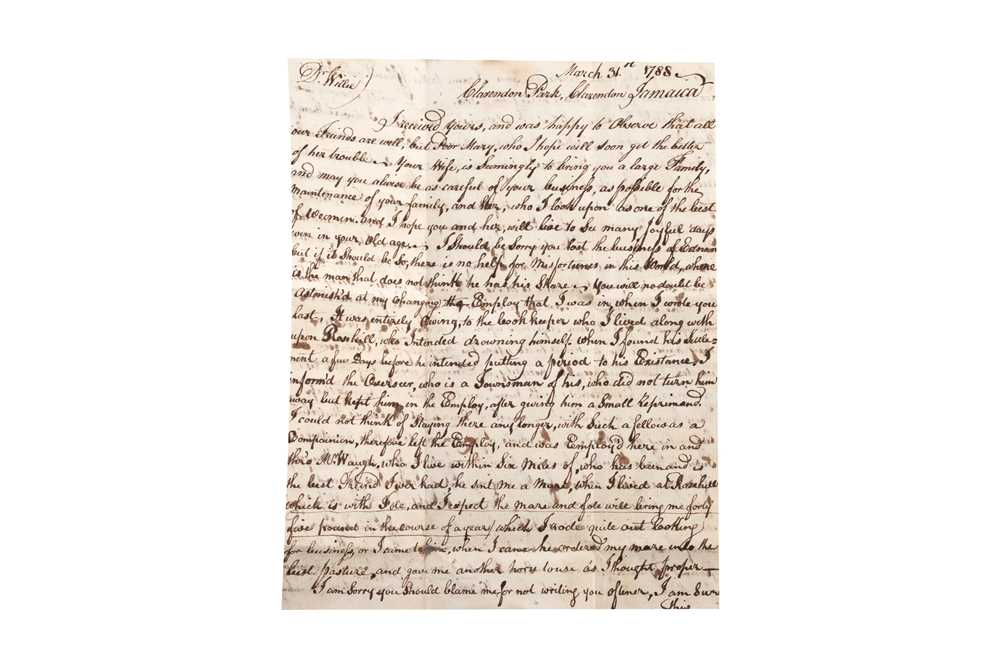 March 31st 1788
Dr. Willie)
Clarendon Park, Clarendon Jamaica
I received yours, and was happy to Observe that all
our Friends are well, but Poor Mary, who I hope will soon get the better
of her trouble. Your Wife, is Seemingly to bring you a large Family,
and may you alwise be as careful of your business, as possible for the
maintenance of your family, and her, who I look upon as one of the best
of Women. and I hope you and her, will live to See many Joyful days
even in your Old age. I Should be Sorry you lost the business of
but if it Should be So, there is no help for Misfortunes in this World, where
is the man that does not think he has his Share. You will no doubt be
Astonish'd at my Changing the Employ that I was in, when I wrote you
last, It was entirely Owing, to the bookkeeper who I lived along with
upon Rosehill, who Intended drowning himself. When I found his Settle-
ment a few Days before he intended putting a period to his Existance, I
inform'd the Overseer, who is a Townsman of his, who did not turn him
way but kept him in the Employ, after giving him a Small Reprimand.
I could not think of Staying there any longer, with Such a fellow as a
Companion, therefore left the Employ, and was Employ'd here in and
thro Mr. Waugh, who I live within Six Miles of, who has been and is
the best Friend I ever had, he sent me a Mare, when I lived at Rosehill
which is with Fole, and I expect the mare and fole will bring me forty
five pound in the course of a year/ which I rode quite out looking
for business, or I came to him, when I came he ordered my mare into the
best pasture, and gave me another horse to use as I thought proper
I am Sorry you Should blame me for not writing you oftner, I am Sure
this